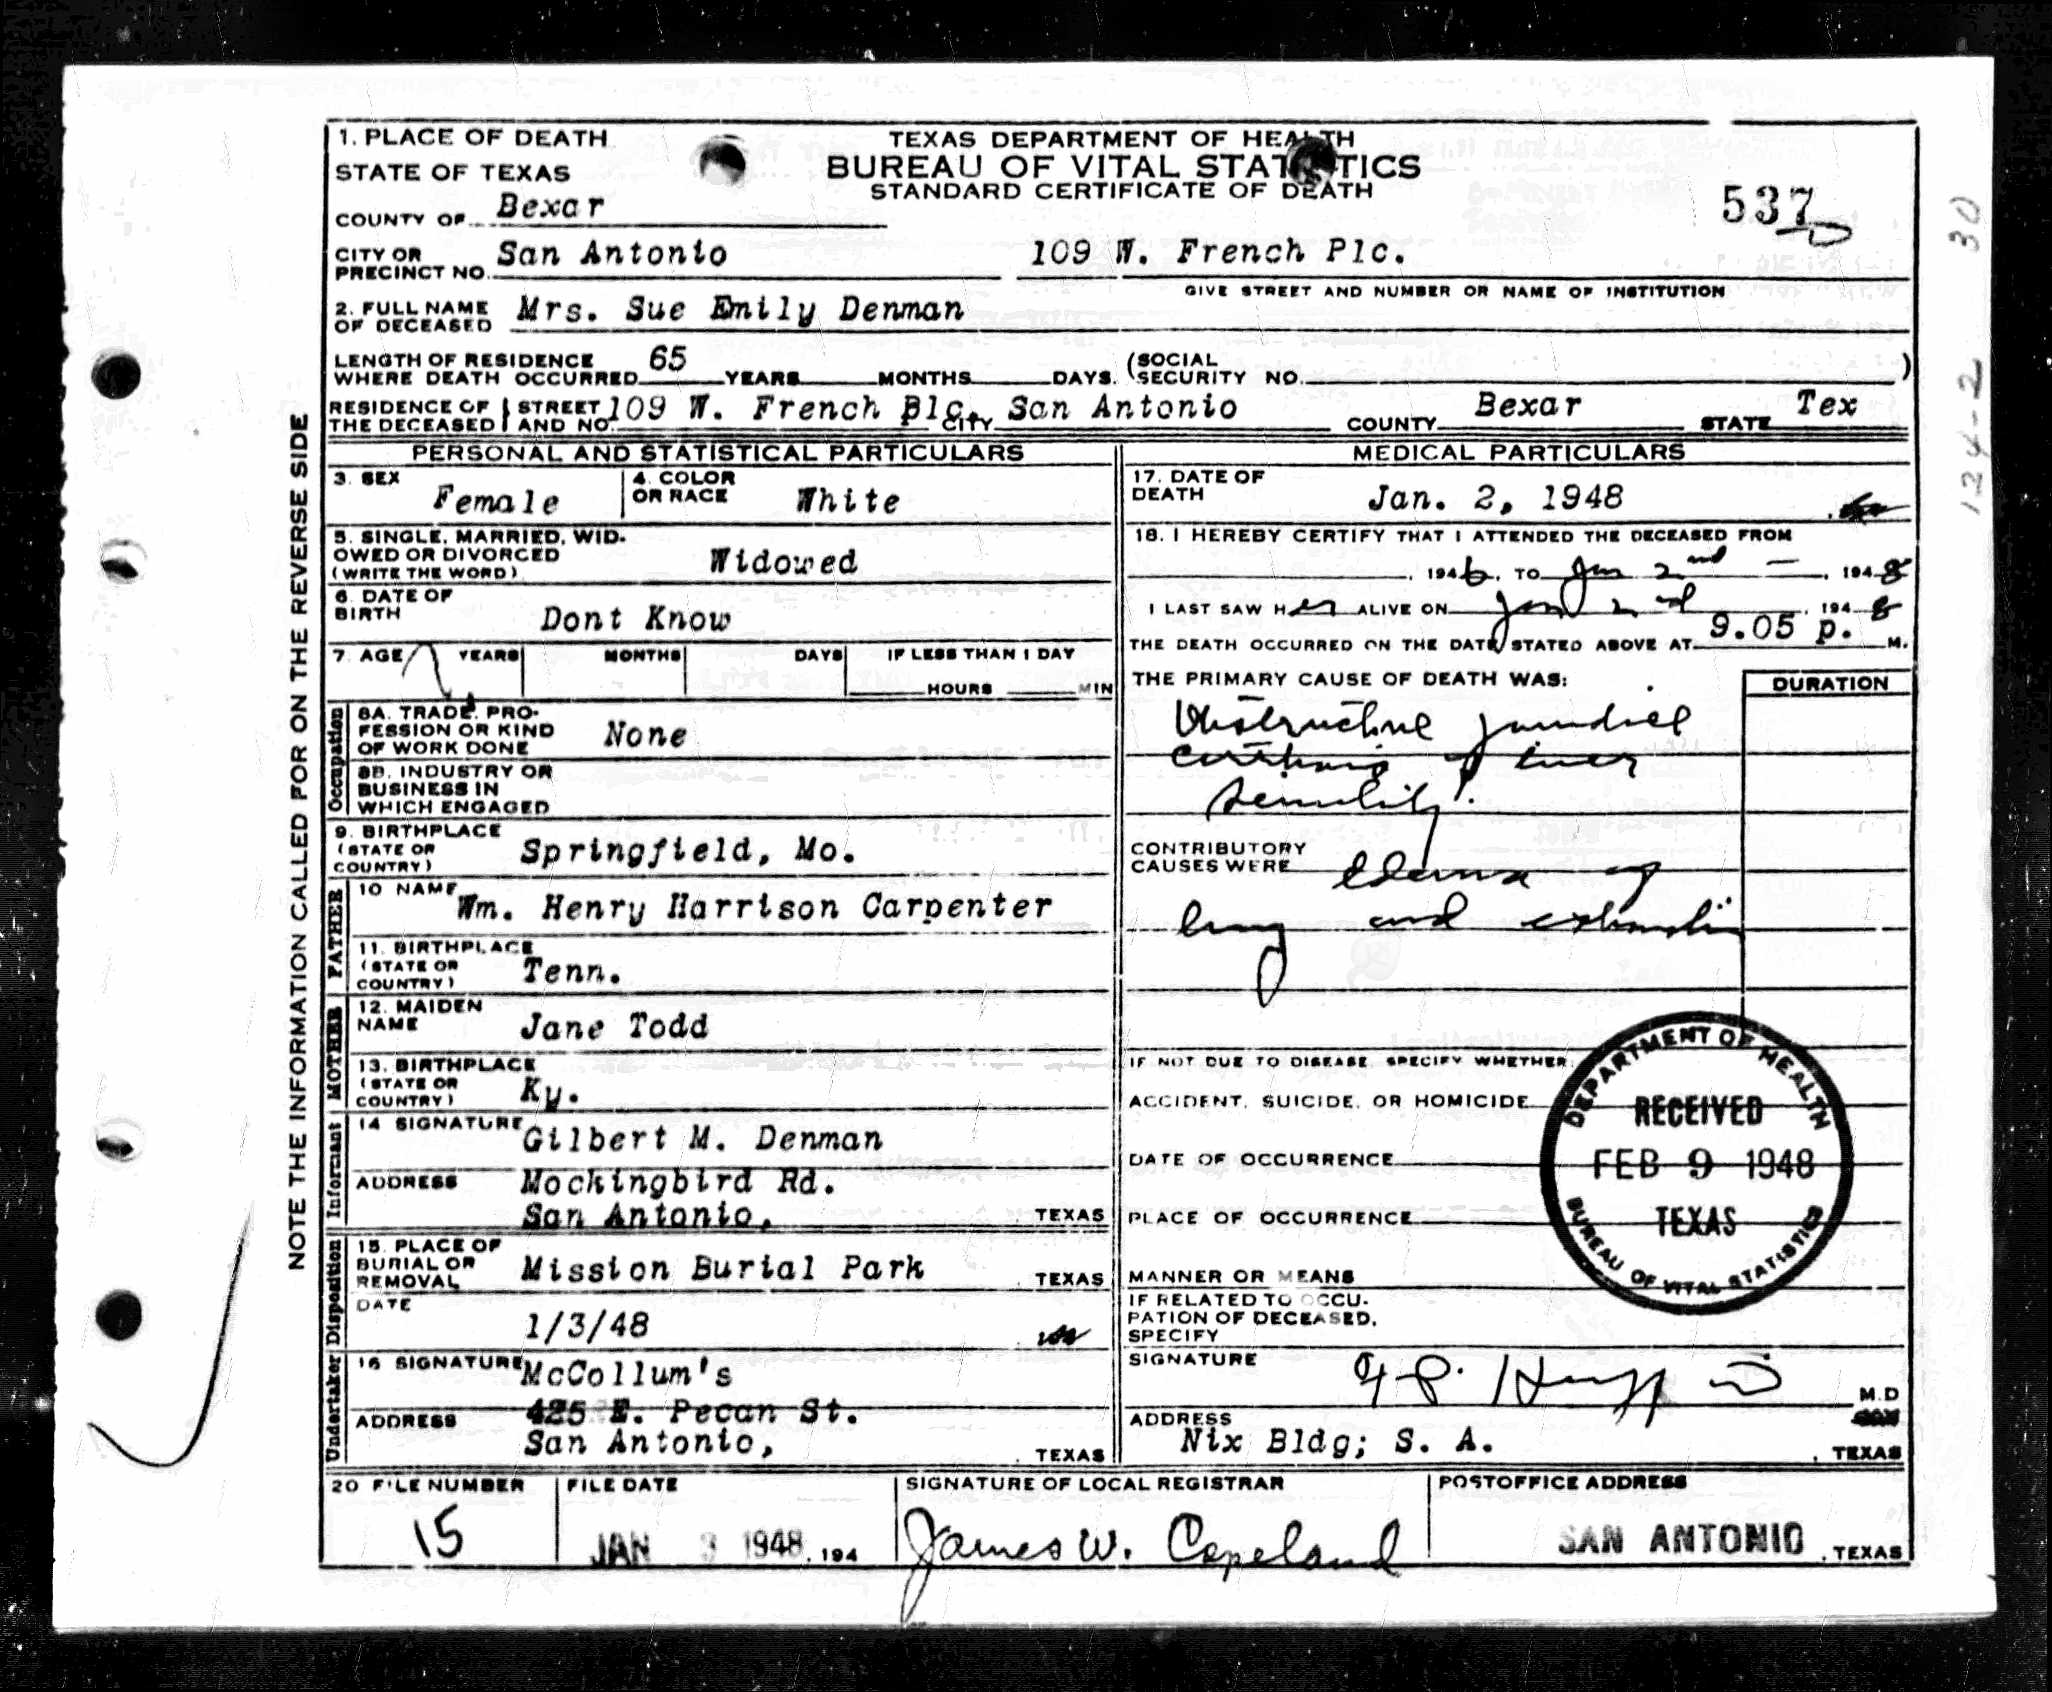 1. PLACE OF DEATH
STATE OF TEXAS
COUNTY OF Bexar
TEXAS DEPARTMENT OF HEALTH
BUREAU OF VITAL STATISTICS
STANDARD CERTIFICATE OF DEATH
537
CITY OR PRECINCT NO. San Antonio 109 W. French Plc.
GIVE STREET AND NUMBER OR NAME OF INSTITUTION
2. FULL NAME OF DECEASED Mrs. Sue Emily Denman
LENGTH OF RESIDENCE WHERE DEATH OCCURRED 65 YEARS MONTHS DAYS. (SOCIAL SECURITY NO. )
RESIDENCE OF THE DECEASED STREET AND NO. 109 W. French Blc. CITY San Antonio COUNTY Bexar STATE Tex
NOTE THE INFORMATION CALLED FOR ON THE REVERSE SIDE
124-2 30
PERSONAL AND STATISTICAL PARTICULARS
3. SEX Female 4. COLOR OR RACE White
5. SINGLE, MARRIED, WIDOWED OR DIVORCED (WRITE THE WORD) Widowed
6. DATE OF BIRTH Dont Know
7. AGE YEARS MONTHS DAYS IF LESS THAN 1 DAY
HOURS MIN
Occupation
8A. TRADE, PROFESSION OR KIND OF WORK DONE None
8B. INDUSTRY OR BUSINESS IN WHICH ENGAGED
9. BIRTHPLACE (STATE OR COUNTRY) Springfield, Mo.
FATHER
10 NAME Wm. Henry Harrison Carpenter
11. BIRTHPLACE (STATE OR COUNTRY) Tenn.
MOTHER
12. MAIDEN NAME Jane Todd
13. BIRTHPLACE (STATE OR COUNTRY) Ky.
Informant
14 SIGNATURE Gilbert M. Denman
ADDRESS Mockingbird Rd.
San Antonio, TEXAS
Disposition
15. PLACE OF BURIAL OR REMOVAL Mission Burial Park TEXAS
DATE 1/3/48
Undertaker
16 SIGNATURE McCollum's
ADDRESS 425 E. Pecan St.
San Antonio, TEXAS
MEDICAL PARTICULARS
17. DATE OF DEATH Jan. 2, 1948
18. I HEREBY CERTIFY THAT I ATTENDED THE DECEASED FROM
1946, TO Jan 2nd 1948
I LAST SAW Her ALIVE ON Jan 2nd 1948
THE DEATH OCCURRED ON THE DATE STATED ABOVE AT 9.05 p. M.
THE PRIMARY CAUSE OF DEATH WAS: DURATION
Obstructive jaundice
Cirrhosis of liver
Senility.
CONTRIBUTORY CAUSES WERE Edema of
lung and exhaustion
IF NOT DUE TO DISEASE, SPECIFY WHETHER:
ACCIDENT, SUICIDE, OR HOMICIDE
DATE OF OCCURRENCE
PLACE OF OCCURRENCE
MANNER OR MEANS
IF RELATED TO OCCUPATION OF DECEASED, SPECIFY
DEPARTMENT OF HEALTH
RECEIVED
FEB 9 1948
TEXAS
BUREAU OF VITAL STATISTICS
SIGNATURE M.D
ADDRESS
Nix Bldg; S. A. , TEXAS
20 FILE NUMBER FILE DATE SIGNATURE OF LOCAL REGISTRAR POSTOFFICE ADDRESS
15 JAN 3 1948, 194 James W. Copeland SAN ANTONIO , TEXAS